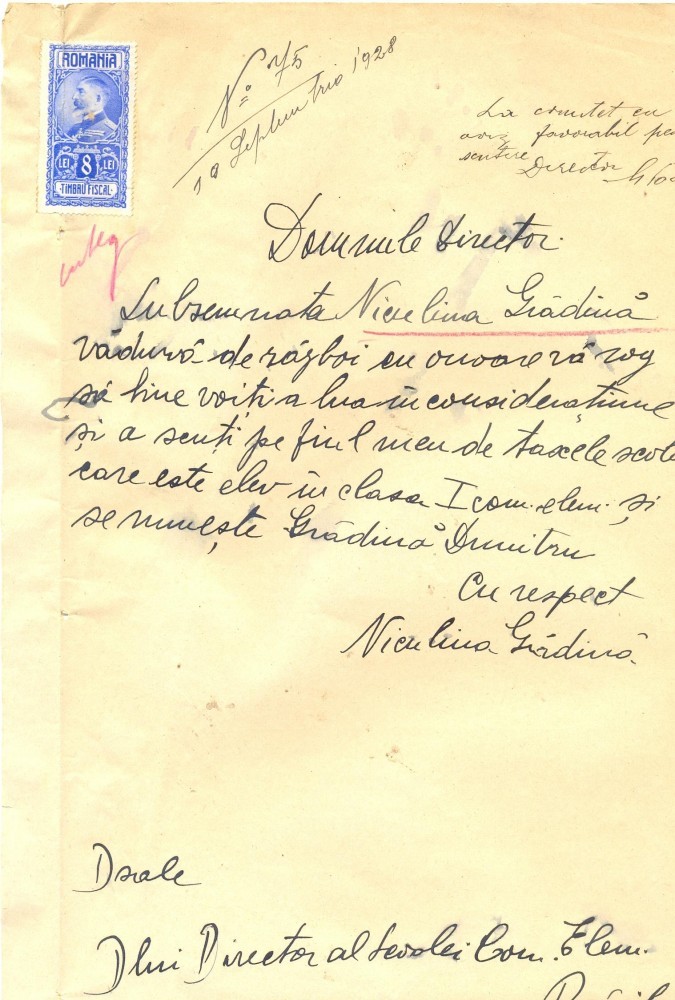 ROMANIA
LEI 8 LEI
TIMBRU FISCAL
No 75
19 Septembrie 1928
La comitet cu
aviz favorabil pe
scutire
Director
integ
Domnule Director.
Subsemnata Niculina Grădină
văduvă de război cu onoare vă rog
să bine voiți a lua in considerațiune
și a scuti pe fiul meu de taxele scol
care este elev in clasa I com. elem. și
se numește Grădină Dumitru
Cu respect
Niculina Grădină
Dsale
Dlui Director al Scolei Com. Elem.